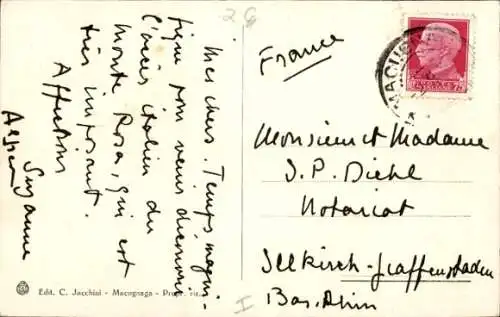 Mes chers. Temps magni-
fique pour venir découvrir
l'accès italien du
Monte Rosa, qui est
très imposant.
Affections
Suzanne
France
Monsieur et Madame
J. P. Diehl
Notariat
Illkirch-Graffenstaden
Bas. Rhin
Edit. C. Jacchini - Macugnaga - Propr. ris.